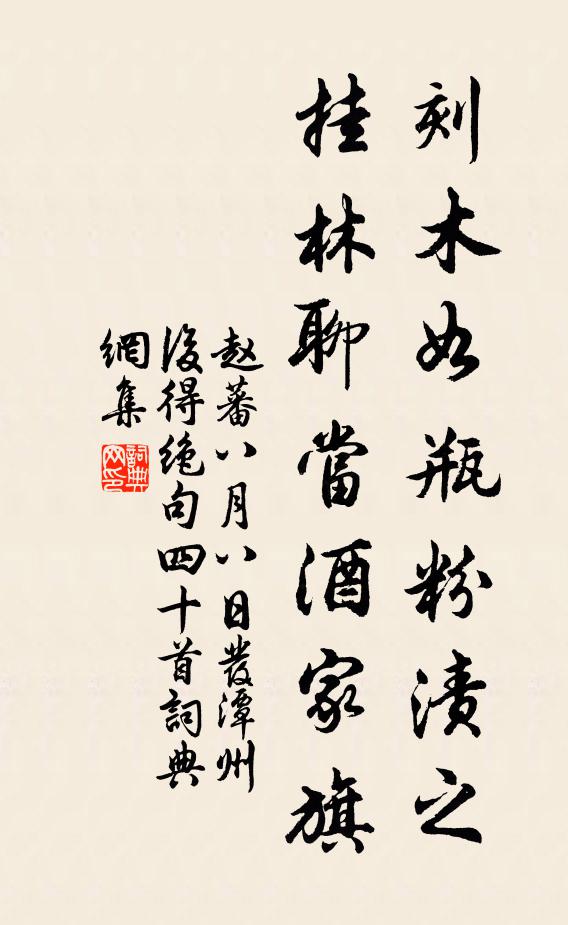 刻木如瓶粉漬之
挂林聊當酒家旗
赵蕃八月八日發潭州
後得绝句四十首詞典
網集
詞典
网印